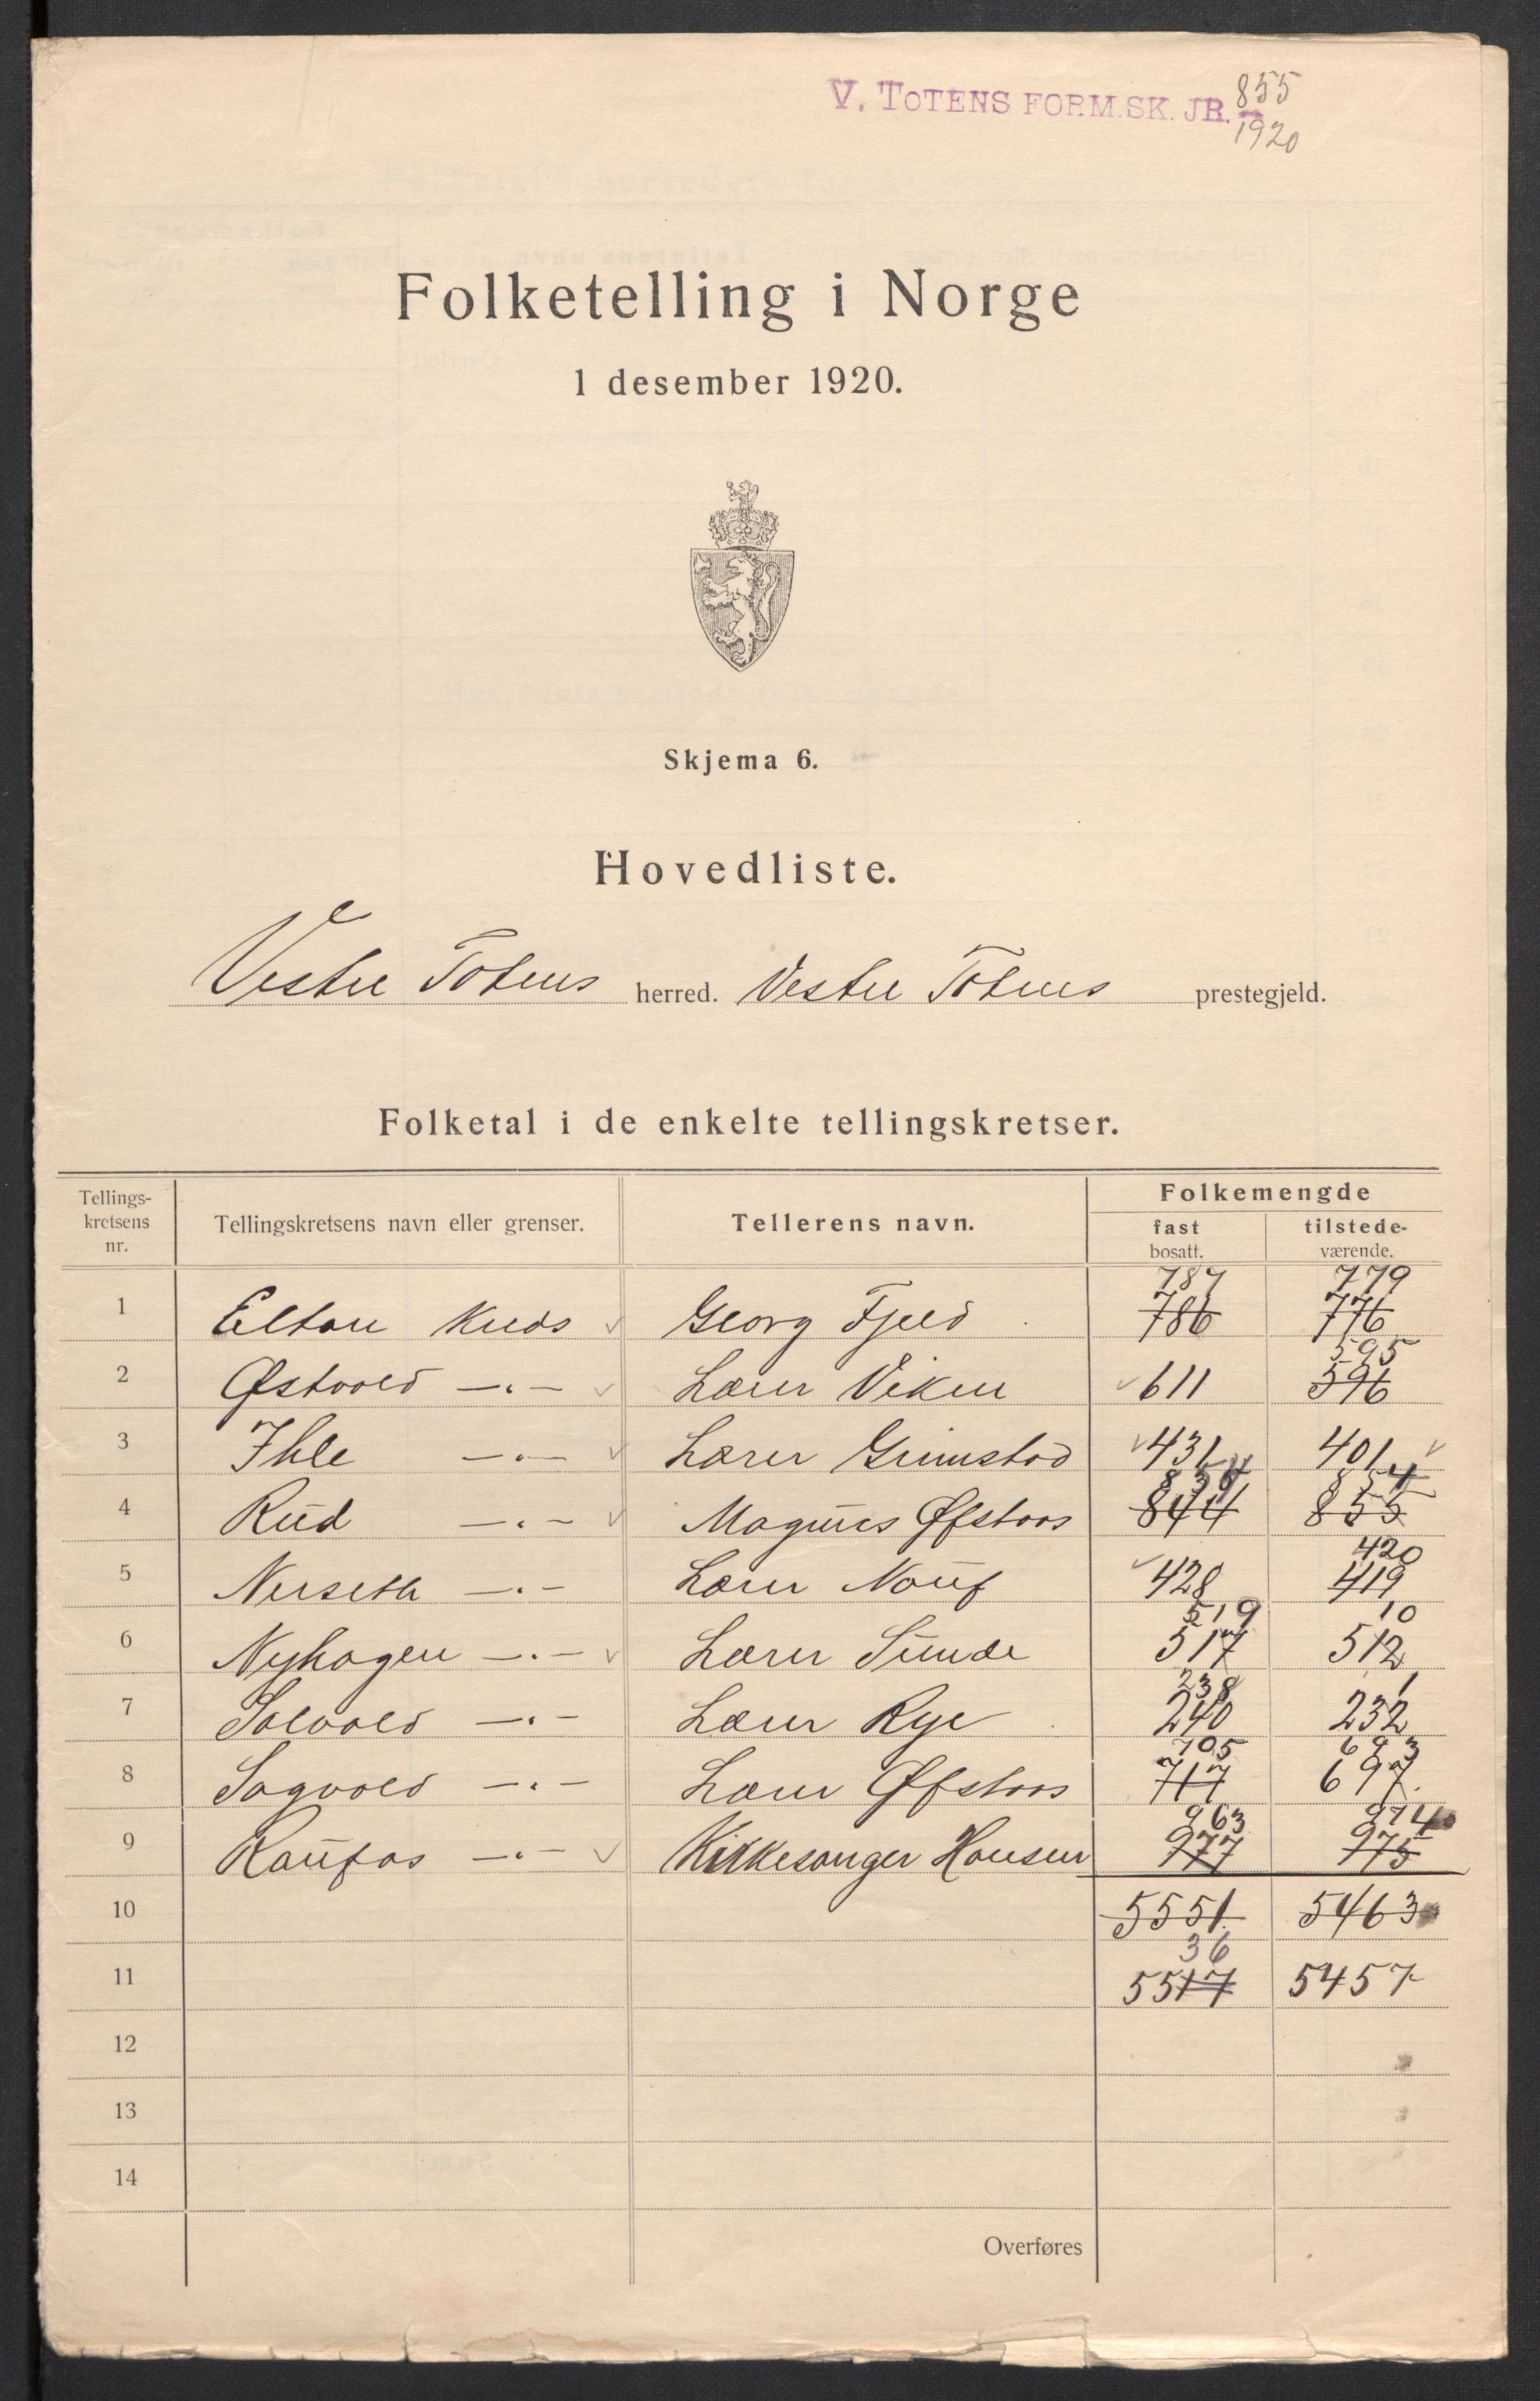 V. TOTENS FORM.SK. JR. 855
1920
Folketelling i Norge
1 desember 1920.
Skjema 6.
Hovedliste.
Vestre Totens herred. Vestre Totens prestegjeld.
Folketal i de enkelte tellingskretser.
Tellings-
kretsens
nr.
Tellingskretsens navn eller grenser.
Tellerens navn.
Folkemengde
fast
bosatt.
tilstede-
værende.
787 779
1 Elton Kreds Georg Fjeld 786 776
595
2 Østvold —〃— Lærer Viken 611 596
3 Ihle —〃— Lærer Grimstad 431 401
854
4 Rud —〃— Magnus Øfstaas 844 855
420
5 Nerseth —〃— Lærer 428 419
519 10
6 Nyhagen —〃— Lærer Sunde 517 512
238 1
7 Solvold —〃— Lærer Rye 240 232
705 693
8 Sagvold —〃— Lærer Øfstaas 717 697
963 974
9 Raufos —〃— Kirkesanger Hansen 977 975
10 5551 5463
36
11 5517 5457
12
13
14
Overføres